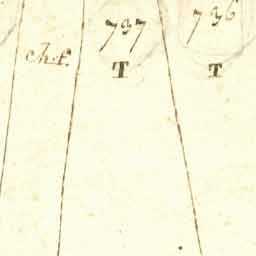 737 736
ch.t.
T T